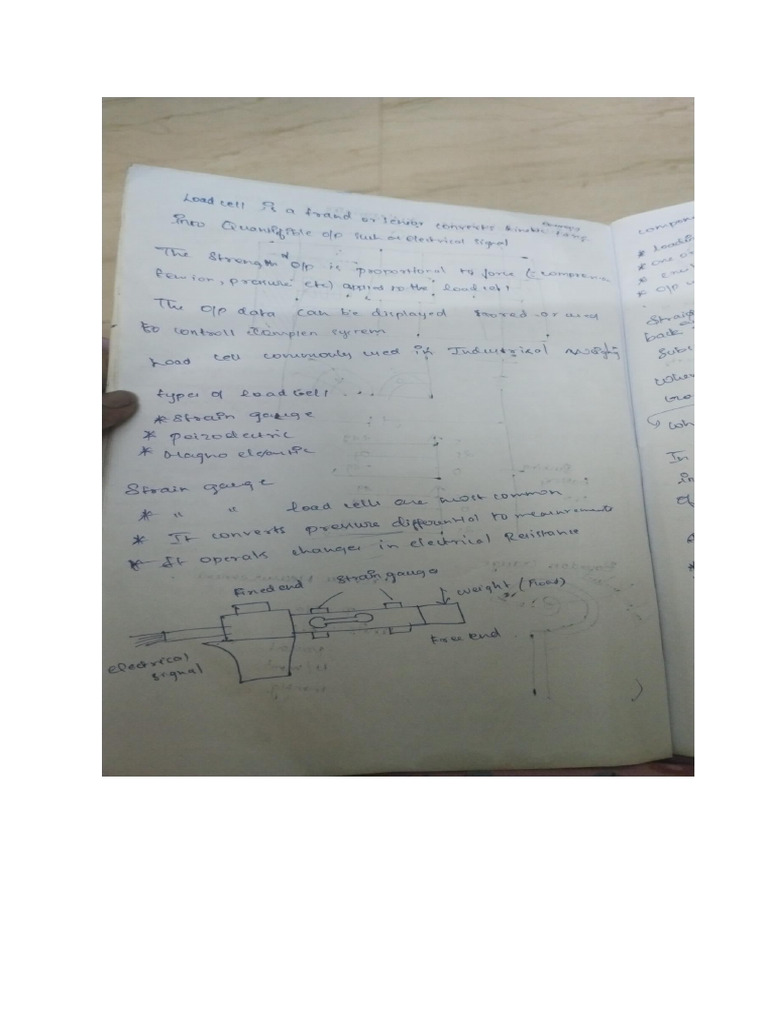 Load cell is a trand or sensor converts kinetic energy
into Quantifible o/p such as electrical signal
The strength of o/p is proportional to force (compress
tension, pressure etc) applied to the load cell
The o/p data can be displayed stored or used
to controll complex system
Load cell commonly used in Industrical weighing
types of load cell ...
* strain gauge
* peizo electric
* Magno elcastic
Strain gauge
* " " load cells are most common
* It converts pressure differential to measurements
* It operats changes in electrical Resistance
Fixed end
strain gauge
weight (Load)
Free end
electrical
signal
compone
* Loadin
* one o
* o/p
Strai
back
Subs
Wher
Wh
In
in